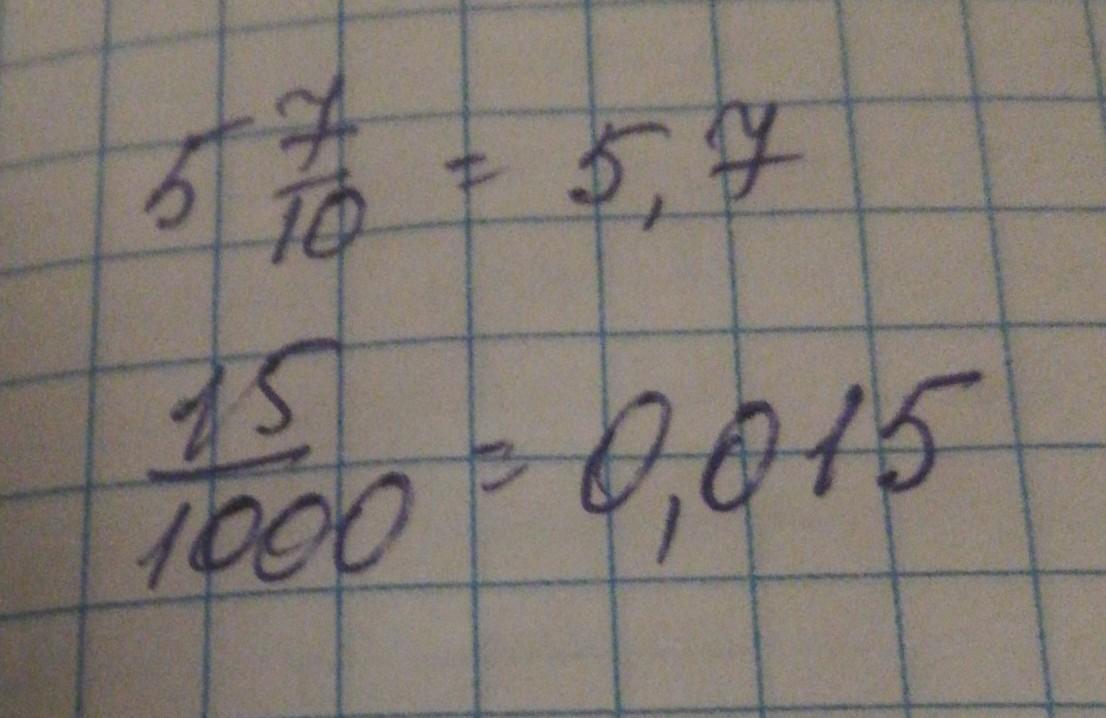 5 7/10 = 5,7
15/1000 = 0,015